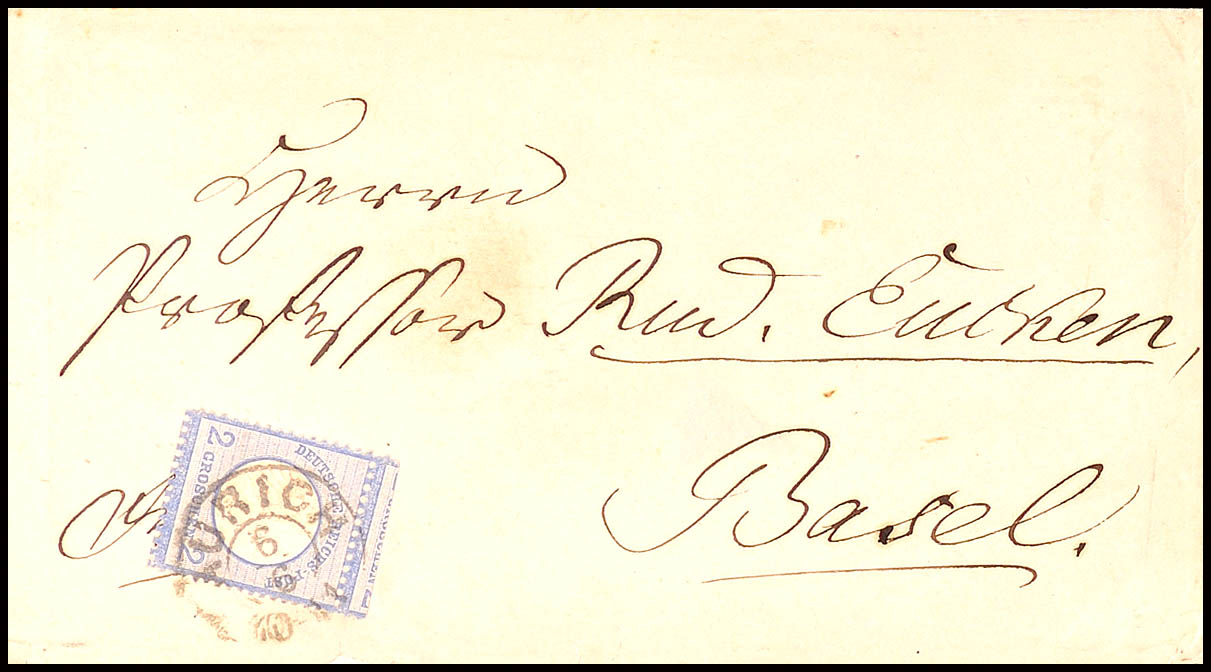 Herrn
Professor Rud. Eucken,
Basel.
Fr.
2 GROSCHEN 2
DEUTSCHE REICHS-POST
AURICH
6